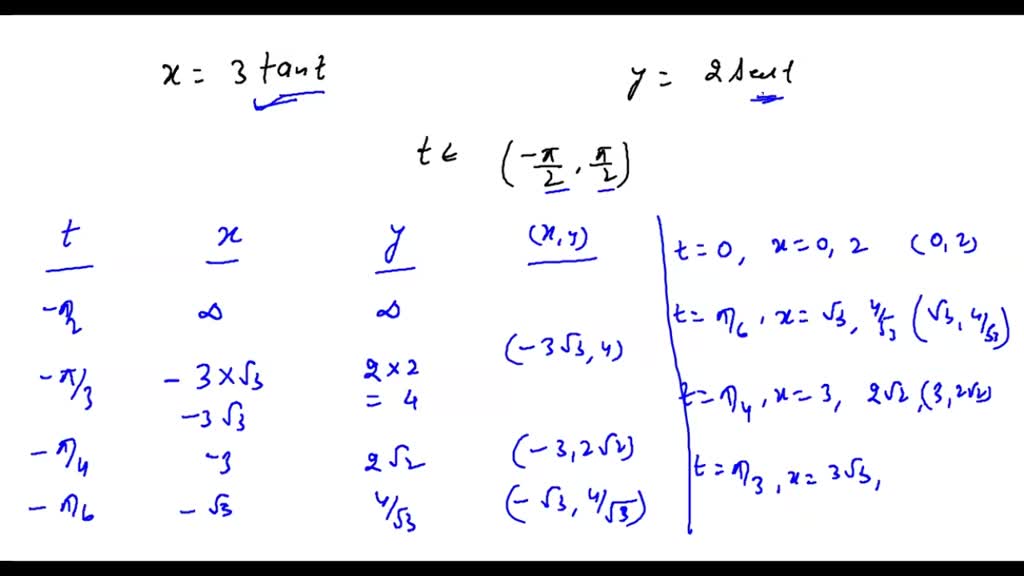 x = 3 tant
y = 2 sect
t ∈ (-π/2, π/2)
t x y (x,y)
-π/2 ∞ ∞
-π/3 -3×√3 2×2 (-3√3, 4)
-3√3 = 4
-π/4 -3 2√2 (-3, 2√2)
-π/6 -√3 4/√3 (-√3, 4/√3)
t=0, x=0, 2 (0,2)
t=π/6, x=√3, 4/√3 (√3, 4/√3)
t=π/4, x=3, 2√2, (3,2√2)
t=π/3, x=3√3,